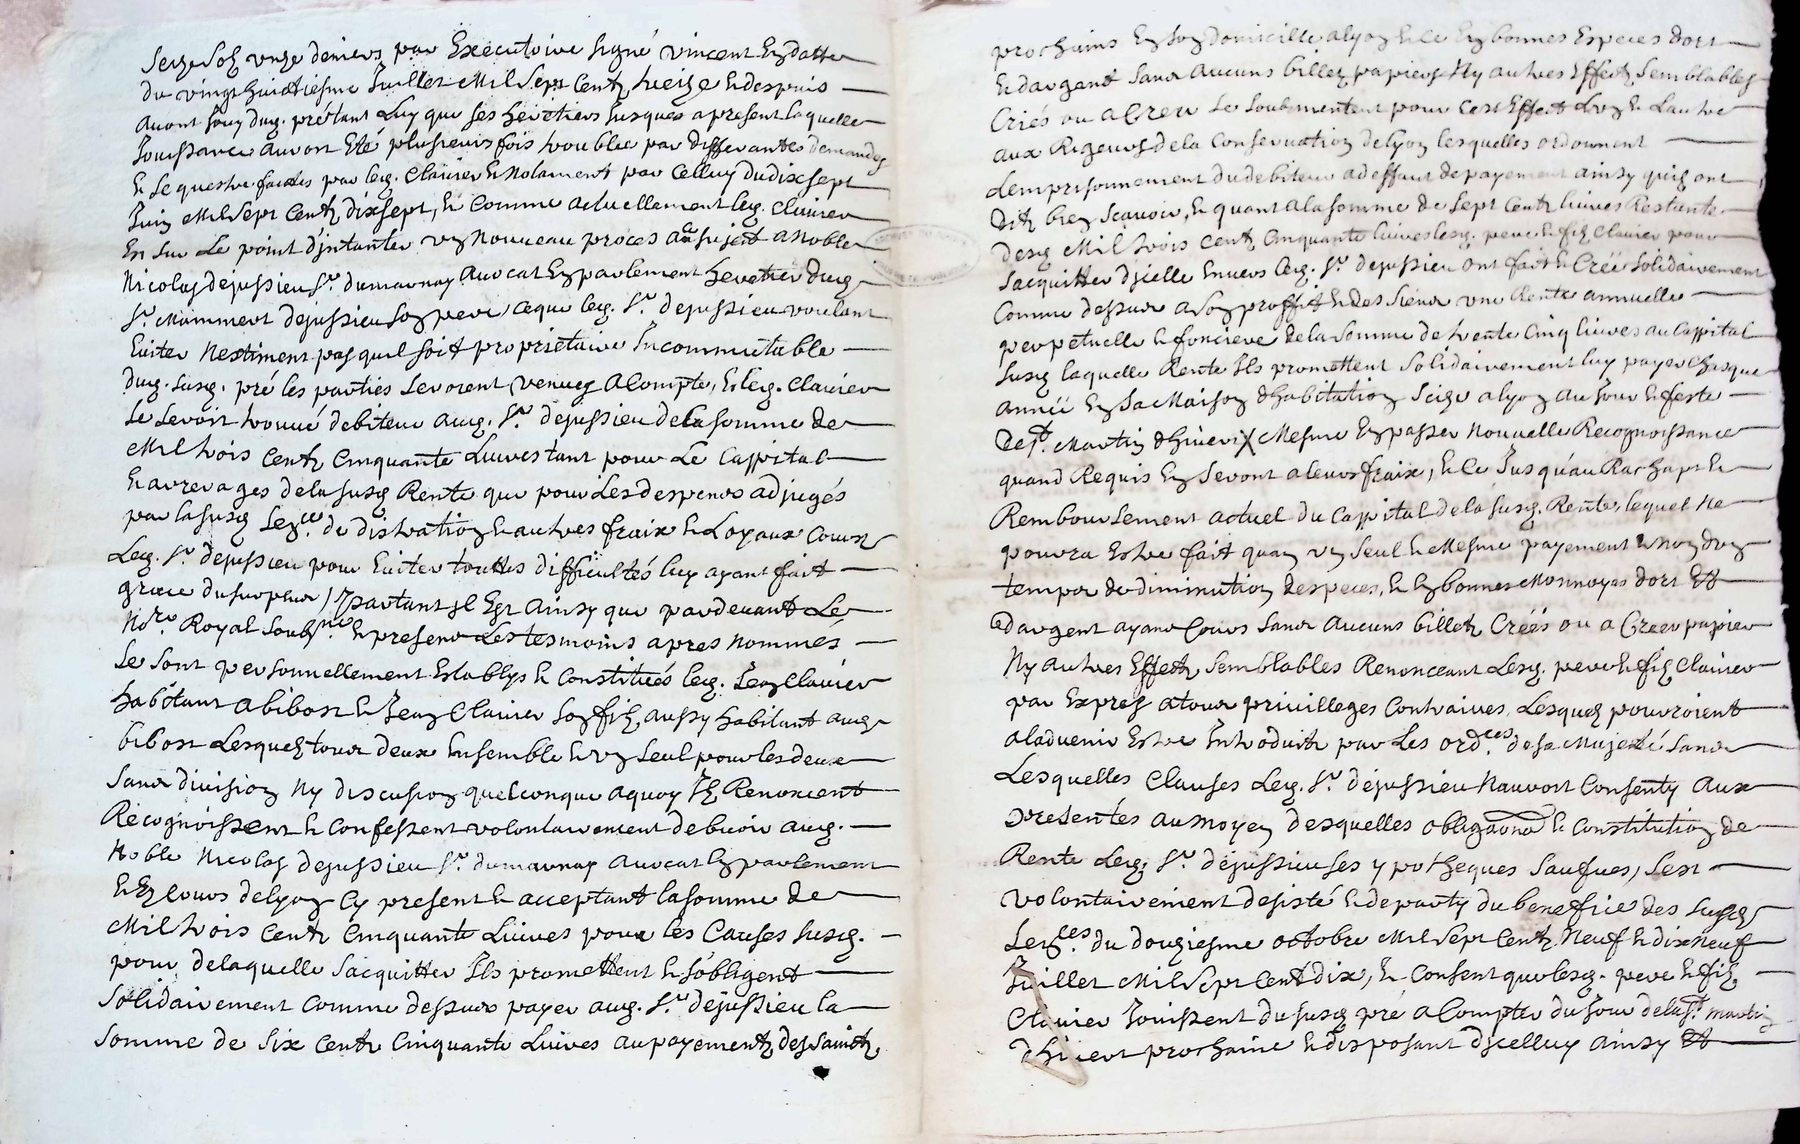 seize solz unze deniers par Executoire signé vincent En datte
du vingt huictiesme Juillet Mil Sept Centz treize & despuis
auront Jouy dud. pré tant Luy que ses heritiers Jusques a present laquelle
Jouissance auroit Eté plusieurs fois troublée par differantes demandes
& sequestre faictes par led. Clavier & Notament par Celluy du dix sept
Juin Mil Sept Centz dix sept, & Comme actuellement led. Clavier
Est sur Le point d'jntanter un Nouveau proces au sujest a Noble
Nicolas dejussieu Sr. dumarnay avocat En parlement heretier dud.
Sr. Mamment dejussieu son pere, ceque led. Sr. dejussieu voulant
Euiter Nestiment pas quil soit proprietaire Incommutable
dud. susd. pré les parties seroient venues a Compte, & led. Clavier
se seroit trouué debiteur aud. Sr. dejussieu de la somme de
Mil trois Centz Cinquante Liures tant pour Le Cappital
& arrerages de la susd. Rente que pour Les despens adjugés
par la susd. Sence. de distraction & autres fraix & Loyaux Coustz
Led. Sr. dejussieu pour Euiter touttes difficultés luy ayant fait
grace du surplus, partant jl Est ainsy que pardeuant Le
Nore. Royal soubsne. & presens Les tesmoins apres Nommés
se sont personnellement Establys & Constitués led. Jean Clavier
habitant a bibost & Jean Clavier son filz aussy habitant aud.
bibost Lesquelz tous deux Ensemble & un seul pour les deux
sans division Ny discusion quelconque aquoy Ilz Renoncent
Recognoissent & Confessent volontairement debuoir aud.
Noble Nicolas dejussieu Sr. dumarnay avocat En parlement
& Ez Cours de lyon Cy present & acceptant la somme de
Mil trois Centz Cinquante Liures pour les Causes susd.
pour de laquelle sacquitter Ils promettent & sobligent
solidairement Comme dessus payer aud. Sr. dejussieu la
somme de six Centz Cinquante Liures au payementz des saintz
prochains En son domicille a lyon & le En bonnes Especes dort
& dargent sans aucuns billetz papiers Ny autres Effectz semblables
Criés ou a Creer se soubmentent pour Cest Effect Lun & Lautre
aux Rigeurs de la Conseruation de lyon lesquelles ordonnent
Lemprisonnement du debiteur a deffaut de payement ainsy quilz ont
ditz bien scauoir, & quant a la somme de sept Centz liures Restante
desd. Mil trois Centz Cinquante liures lesd. pere & filz Clavier pour
sacquitter djcelle Enuers led. Sr. dejussieu ont fait & Creé solidairement
Comme dessus a son proffit & des siens une Rente annuelle
perpetuelle & fonciere de la somme de trente Cinq liures au Cappital
susd. laquelle Rente Ils promettent solidairement luy payer Chasque
année En sa Maison dhabitation scize a lyon au Jour & feste
de St. Martin dhiuer X Mesme En passer Nouvelle Recognoissance
quand Requis En seront a leurs fraix, & le Jusquau Rachapt &
Remboursement actuel du Cappital de la susd. Rente, lequel Ne
pourra Estre fait quan un seul & Mesme payement & Non dun
temps de diminution despeces, & En bonnes Monnoyes dort &
dargent ayans Cours sans aucuns billetz Créés ou a Creer papier
Ny autres Effectz semblables Renonceant Lesd. pere & filz Clavier
par Expres a tous priuilleges Contraires Lesquelz pourroient
a laduenir Estre Introduitz par Les ordces. de sa Majesté sans
Lesquelles Clauses Led. Sr. dejussieu Nauroit Consenty aux
presentés au Moyen desquelles obligaons & Constitution de
Rente Led. Sr. dejussieu ses ypotheques saufues, sest
volontairement desisté & departy du benefice des susd.
sences. du douziesme octobre Mil Sept Centz Neuf & dix Neuf
Juillet Mil Sept Cent dix, & Consent que lesd. pere & filz
Clavier Jouissent du susd. pré a Compter du Jour de la St. martin
dhiuert prochaine & disposant djcelluy ainsy &